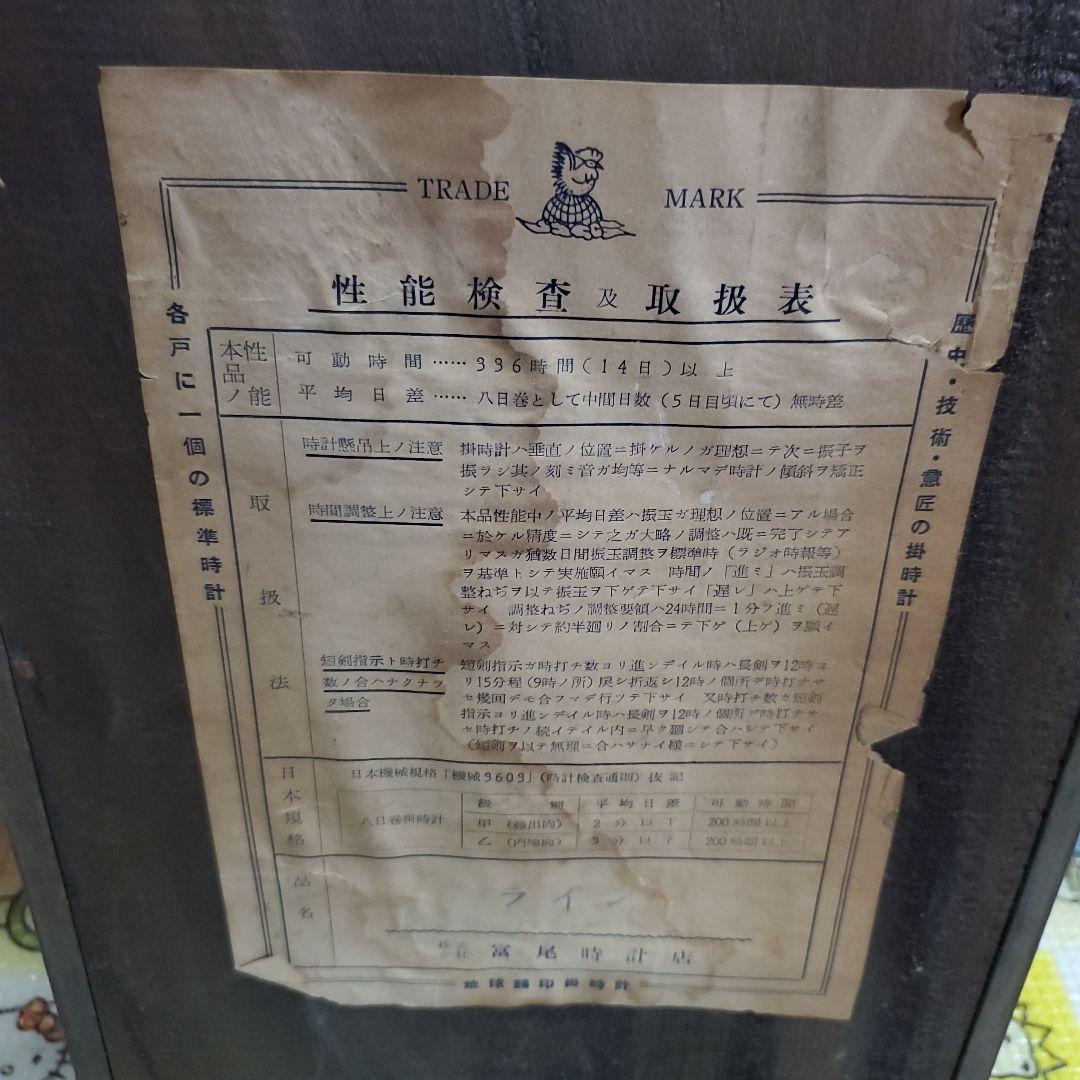 TRADE MARK
性能検査及取扱表
歴史・技術・意匠の掛時計
各戸に一個の標準時計
本品ノ性能
可動時間……336時間(14日)以上
平均日差……八日巻として中間日数(5日目頃にて)無時差
取扱法
時計懸吊上ノ注意
掛時計ハ垂直ノ位置ニ掛ケルノガ理想ニテ次ニ振子ヲ
振ラシ其ノ刻ミ音ガ均等ニナルマデ時計ノ傾斜ヲ矯正
シテ下サイ
時間調整上ノ注意
本品性能中ノ平均日差ハ振玉ガ理想ノ位置ニアル場合
ニ於ケル精度ニシテ之ガ大略ノ調整ハ既ニ完了シテア
リマスガ猶数日間振玉調整ヲ標準時(ラジオ時報等)
ヲ基準トシテ実施願イマス 時間ノ「進ミ」ハ振玉調
整ねぢヲ以テ振玉ヲ下ゲテ下サイ「遅レ」ハ上ゲテ下
サイ 調整ねぢノ調整要領ハ24時間ニ1分ノ進ミ(遅
レ)ニ対シテ約半廻リノ割合ニテ下ゲ(上ゲ)ヲ願イ
マス
短剣指示ト時打チ
数ノ合ハナクナツ
タ場合
短剣指示ガ時打チ数ヨリ進ンデイル時ハ長剣ヲ12時ヨ
リ15分程(9時ノ所)戻シ折返シ12時ノ個所デ時打チサ
セ幾回デモ合フマデ行ツテ下サイ 又時打チ数ガ短剣
指示ヨリ進ンデイル時ハ長剣ヲ12時ノ個所デ時打チサ
セ時打チノ続イテイル内ニ早ク廻シテ合ハシテ下サイ
(短剣ヲ以テ無理ニ合ハサナイ様ニシテ下サイ)
日本規格
日本機械規格「機械3603」(時計検査通則)抜記
級別 平均日差 可動時間
八日巻掛時計
甲(輸出向) 2分以下 200時間以上
乙(内地向) 3分以下 200時間以上
品名
ライン
株式会社 冨尾時計店
地球鶏印掛時計